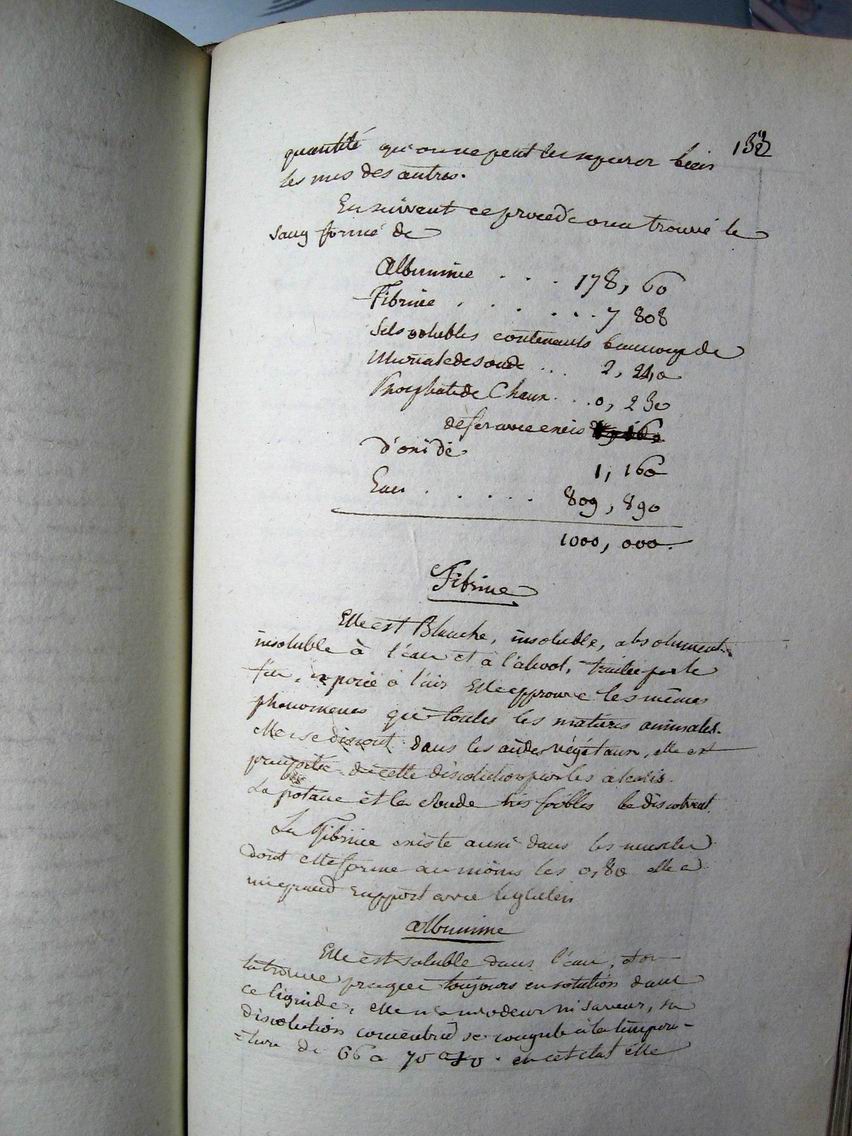 133
quantité qu'on ne peut les separer bien
les uns des autres.
En suivant ce procedé on a trouvé le
sang formé de
Albumine . . . 178, 60
Fibrine . . . . . . 7 808
Sels solubles contenants beaucoup de
Muriate de soude ... 2, 240
Phosphate de Chaux . . . 0, 230
de fer avec excis
d'oxide
1, 160
Eau . . . . . 809, 890
1000, 000.
Fibrine
Elle est Blanche, insoluble, absolument
insoluble à l'eau et à l'alcool, traitée par le
feu, exposée à l'air Elle epprouve les mêmes
phenomenes que toutes les matieres animales.
elle se dissout dans les acides végétaux, elle est
precipitée de cette dissolution par les alcalis.
La potasse et la soude très foibles la dissolvent.
La Fibrine existe aussi dans les muscles
dont elle forme au moins les 0,80 elle a
un grand rapport avec le gluten
albumine
Elle est soluble dans l'eau, et on
la trouve presque toujours en solution dans
ce liquide, elle n'a ni odeur ni saveur, sa
dissolution se coagule à la tempera-
-ture de 66 a 70 en cet etat elle